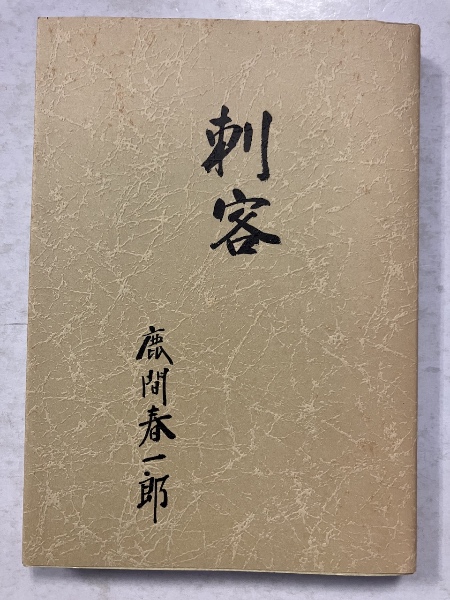 刺客
鹿間春一郎